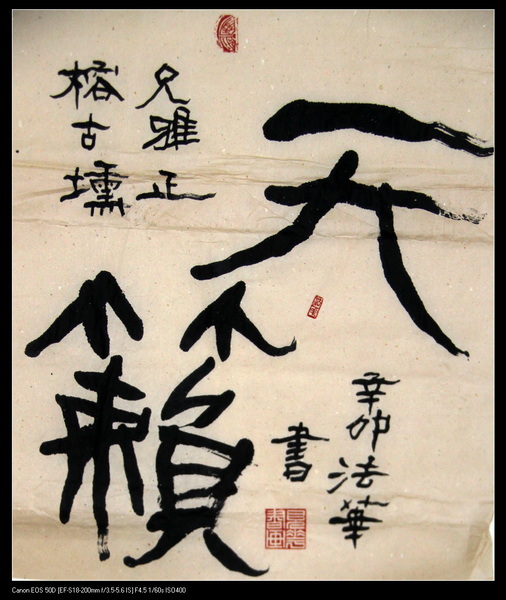 天籟
辛卯法華
書
古
兄雅正
Canon EOS 50D [EF-S18-200mm f/3.5-5.6 IS] F4.5 1/60s ISO400